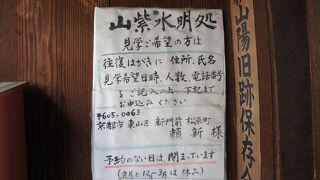 山紫水明処
見学ご希望の方は
往復はがきに 住所、氏名
見学希望日時、人数、電話番号
をご記入の上 下記まで
お申込み ください
〒605-0063
京都市 東山区 新門前 松原町
頼 新 様
予約のない日は、閉まっています
(8月と12〜3月は休み)
山陽旧跡保存会